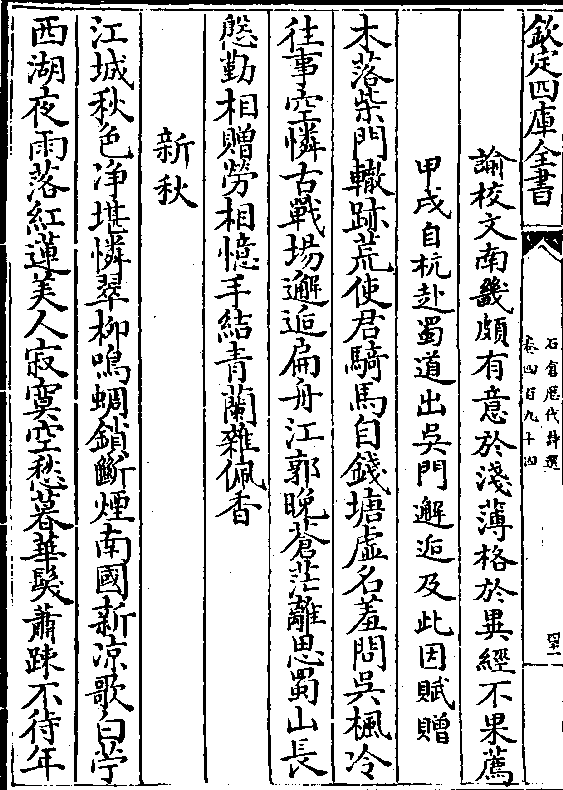 欽定四庫全書
石倉歷代詩選
卷四百九十四
諭校文南畿頗有意於淺薄格於異經不果薦
甲戌自杭赴蜀道出吳門邂逅及此因賦贈
木落柴門轍跡荒使君騎馬自錢塘虛名羞問吳楓冷
往事空憐古戰場邂逅扁舟江郭晚蒼茫離思蜀山長
慇勤相贈勞相憶手結青蘭雜佩香
新秋
江城秋色净堪憐翠柳鳴蜩鎖斷煙南國新凉歌白苧
西湖夜雨落紅蓮美人寂寞空愁暮華髮蕭踈不待年